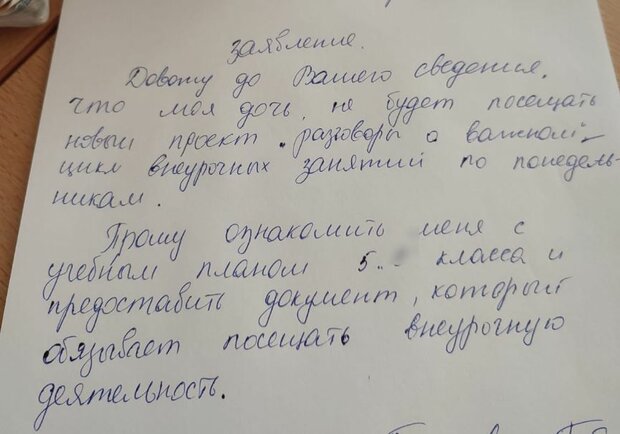 заявление.
Довожу до Вашего сведения,
что моя дочь, не будет посещать
новый проект „разговоры о важном" –
цикл внеурочных занятий по понедель-
никам.
Прошу ознакомить меня с
учебным планом 5 класса и
предоставить документ, который
обязывает посещать внеурочную
деятельность.